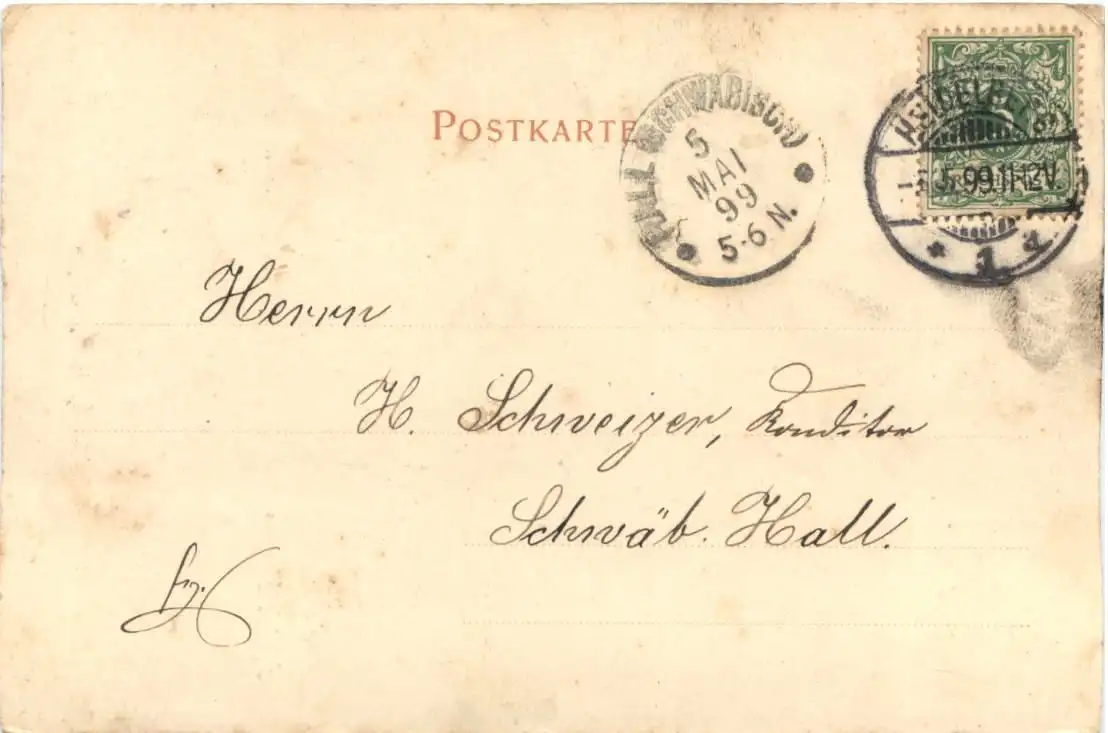 POSTKARTE
HALL (SCHWÄBISCH)
5
MAI
99
5-6 N.
HEIDELBERG
5.99.11-12V.
* 1 a
Herrn
H. Schweizer, Konditor
Schwäb. Hall.